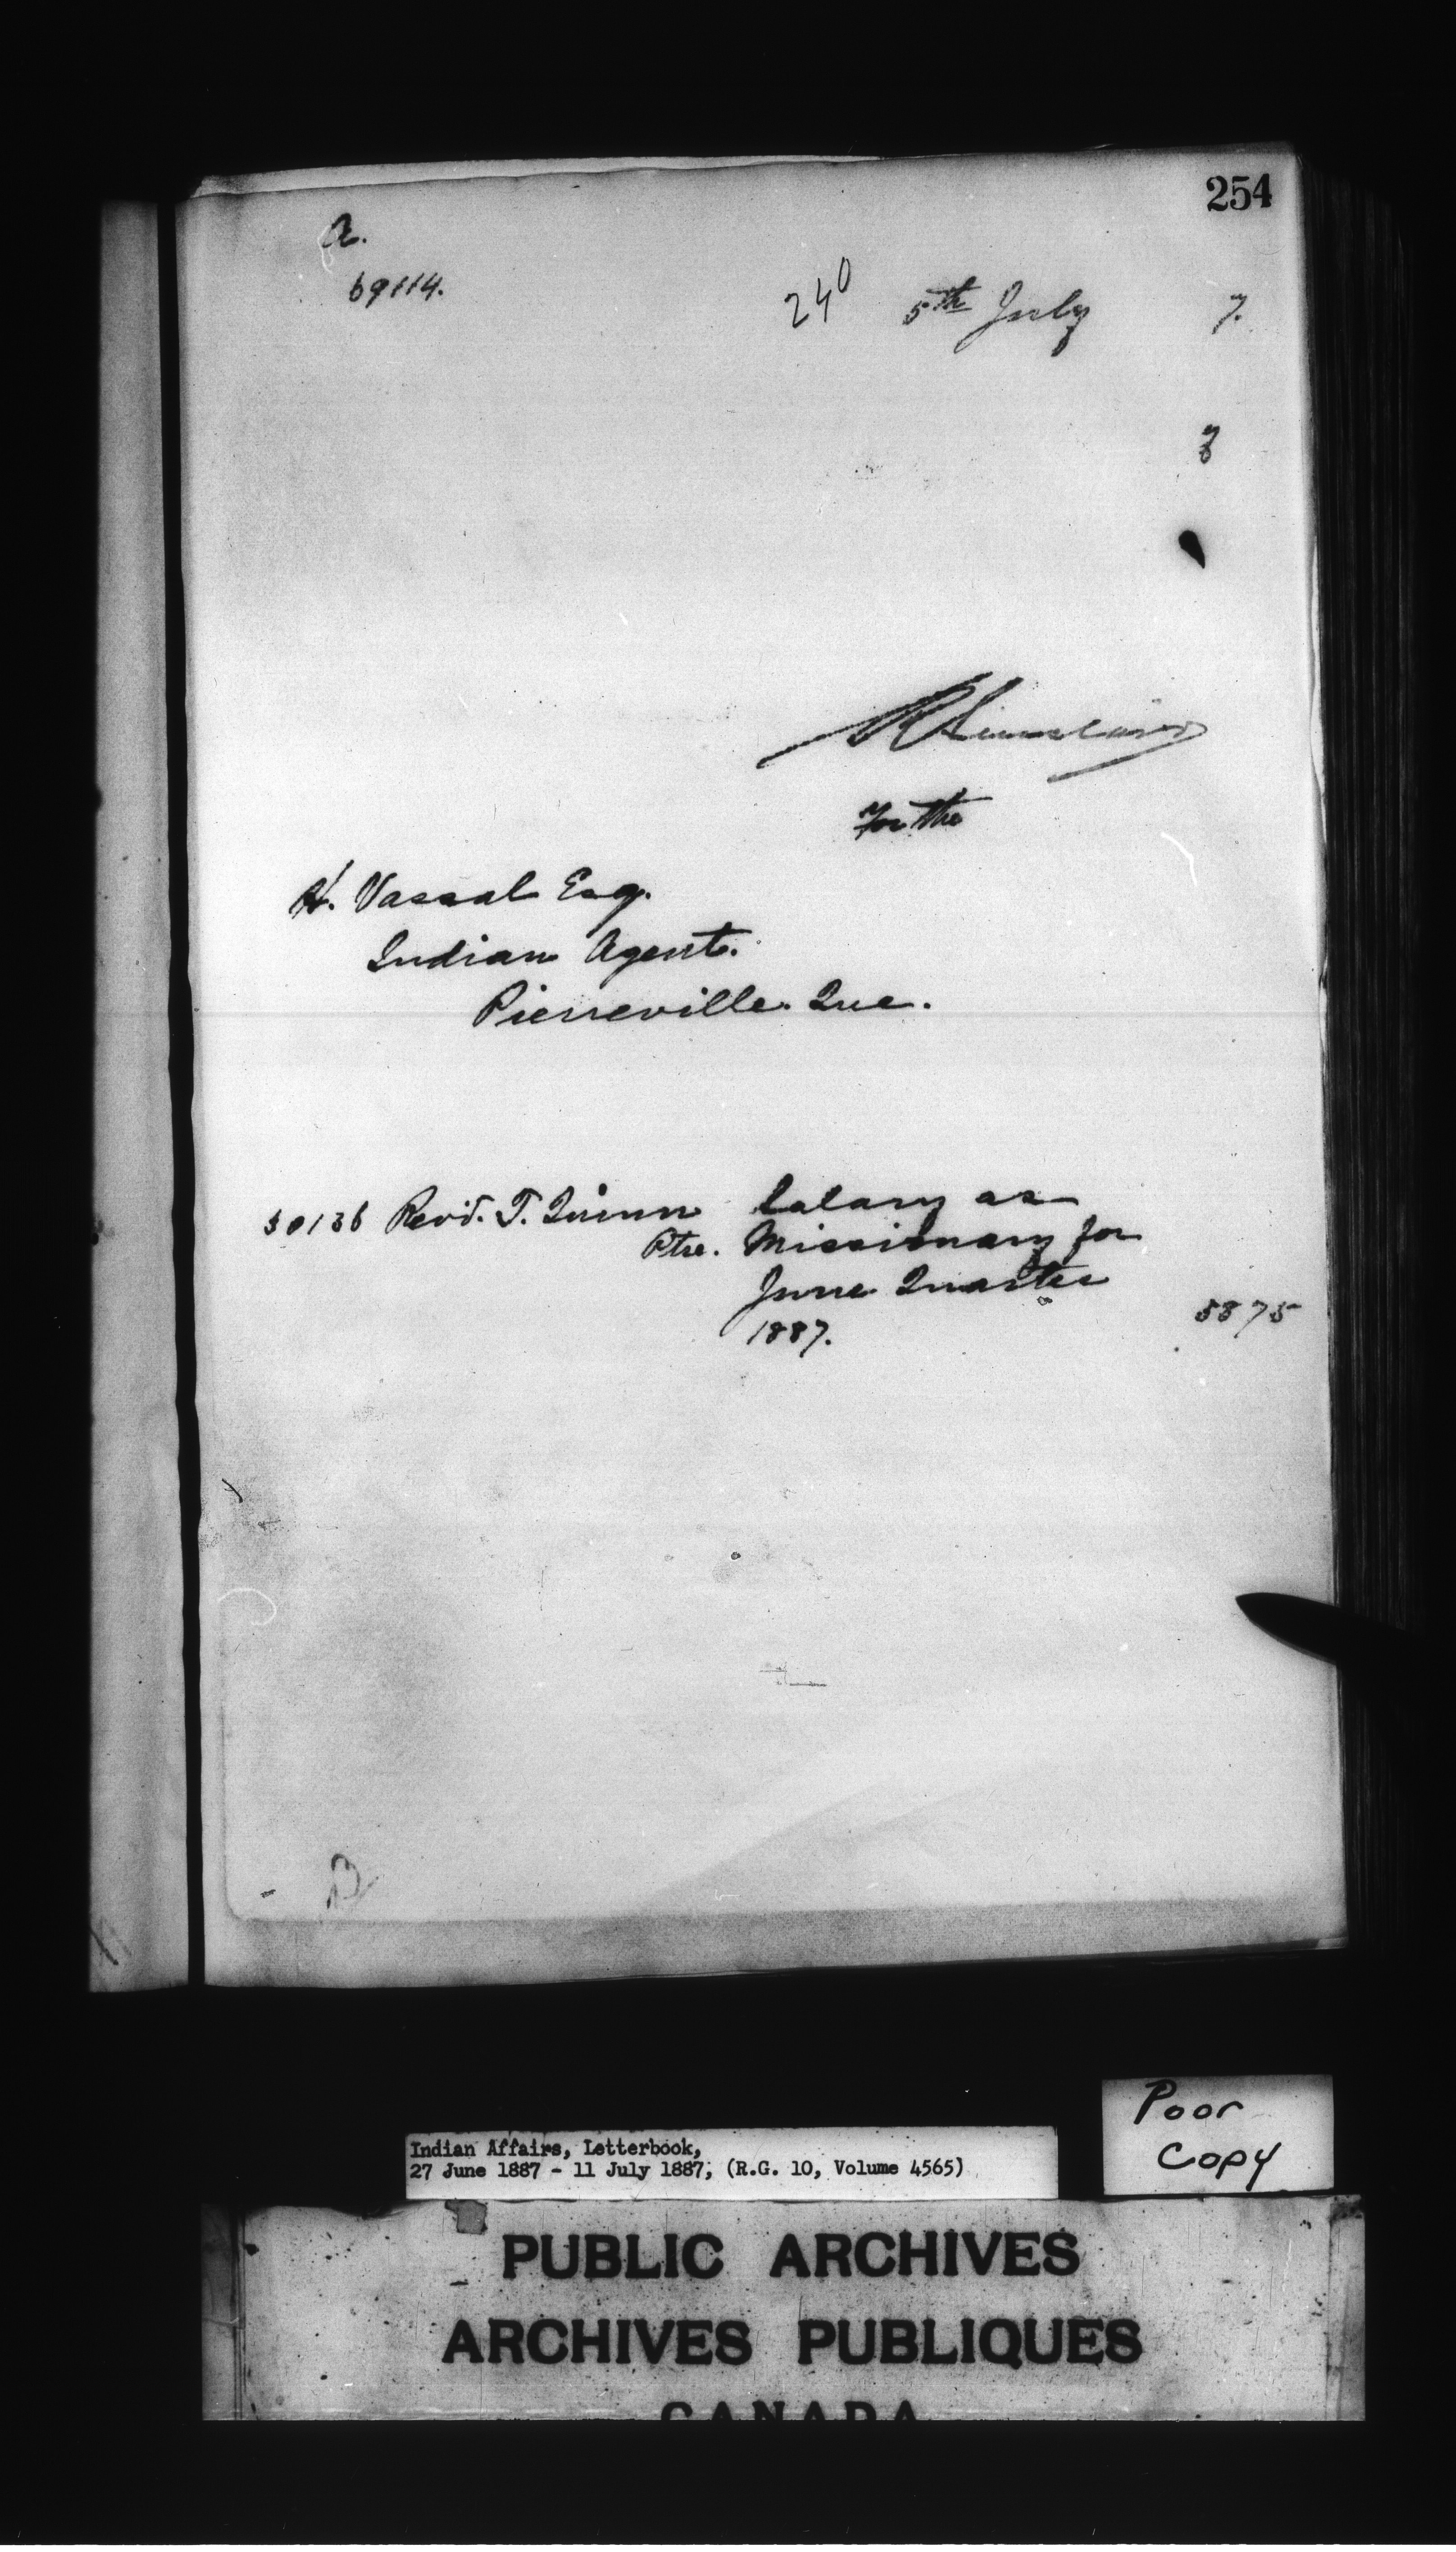 254
A.
69114.
240 5th July 7.
7
R Sinclair
For the
H. Vassal Esq.
Indian Agent.
Pierreville. Que.
30136 Revd. T. Quinn Salary as
Ptre. Missionary for
June Quarter
1887. 58 75
B
Poor
Copy
Indian Affairs, Letterbook,
27 June 1887 - 11 July 1887, (R.G. 10, Volume 4565)
PUBLIC ARCHIVES
ARCHIVES PUBLIQUES
CANADA